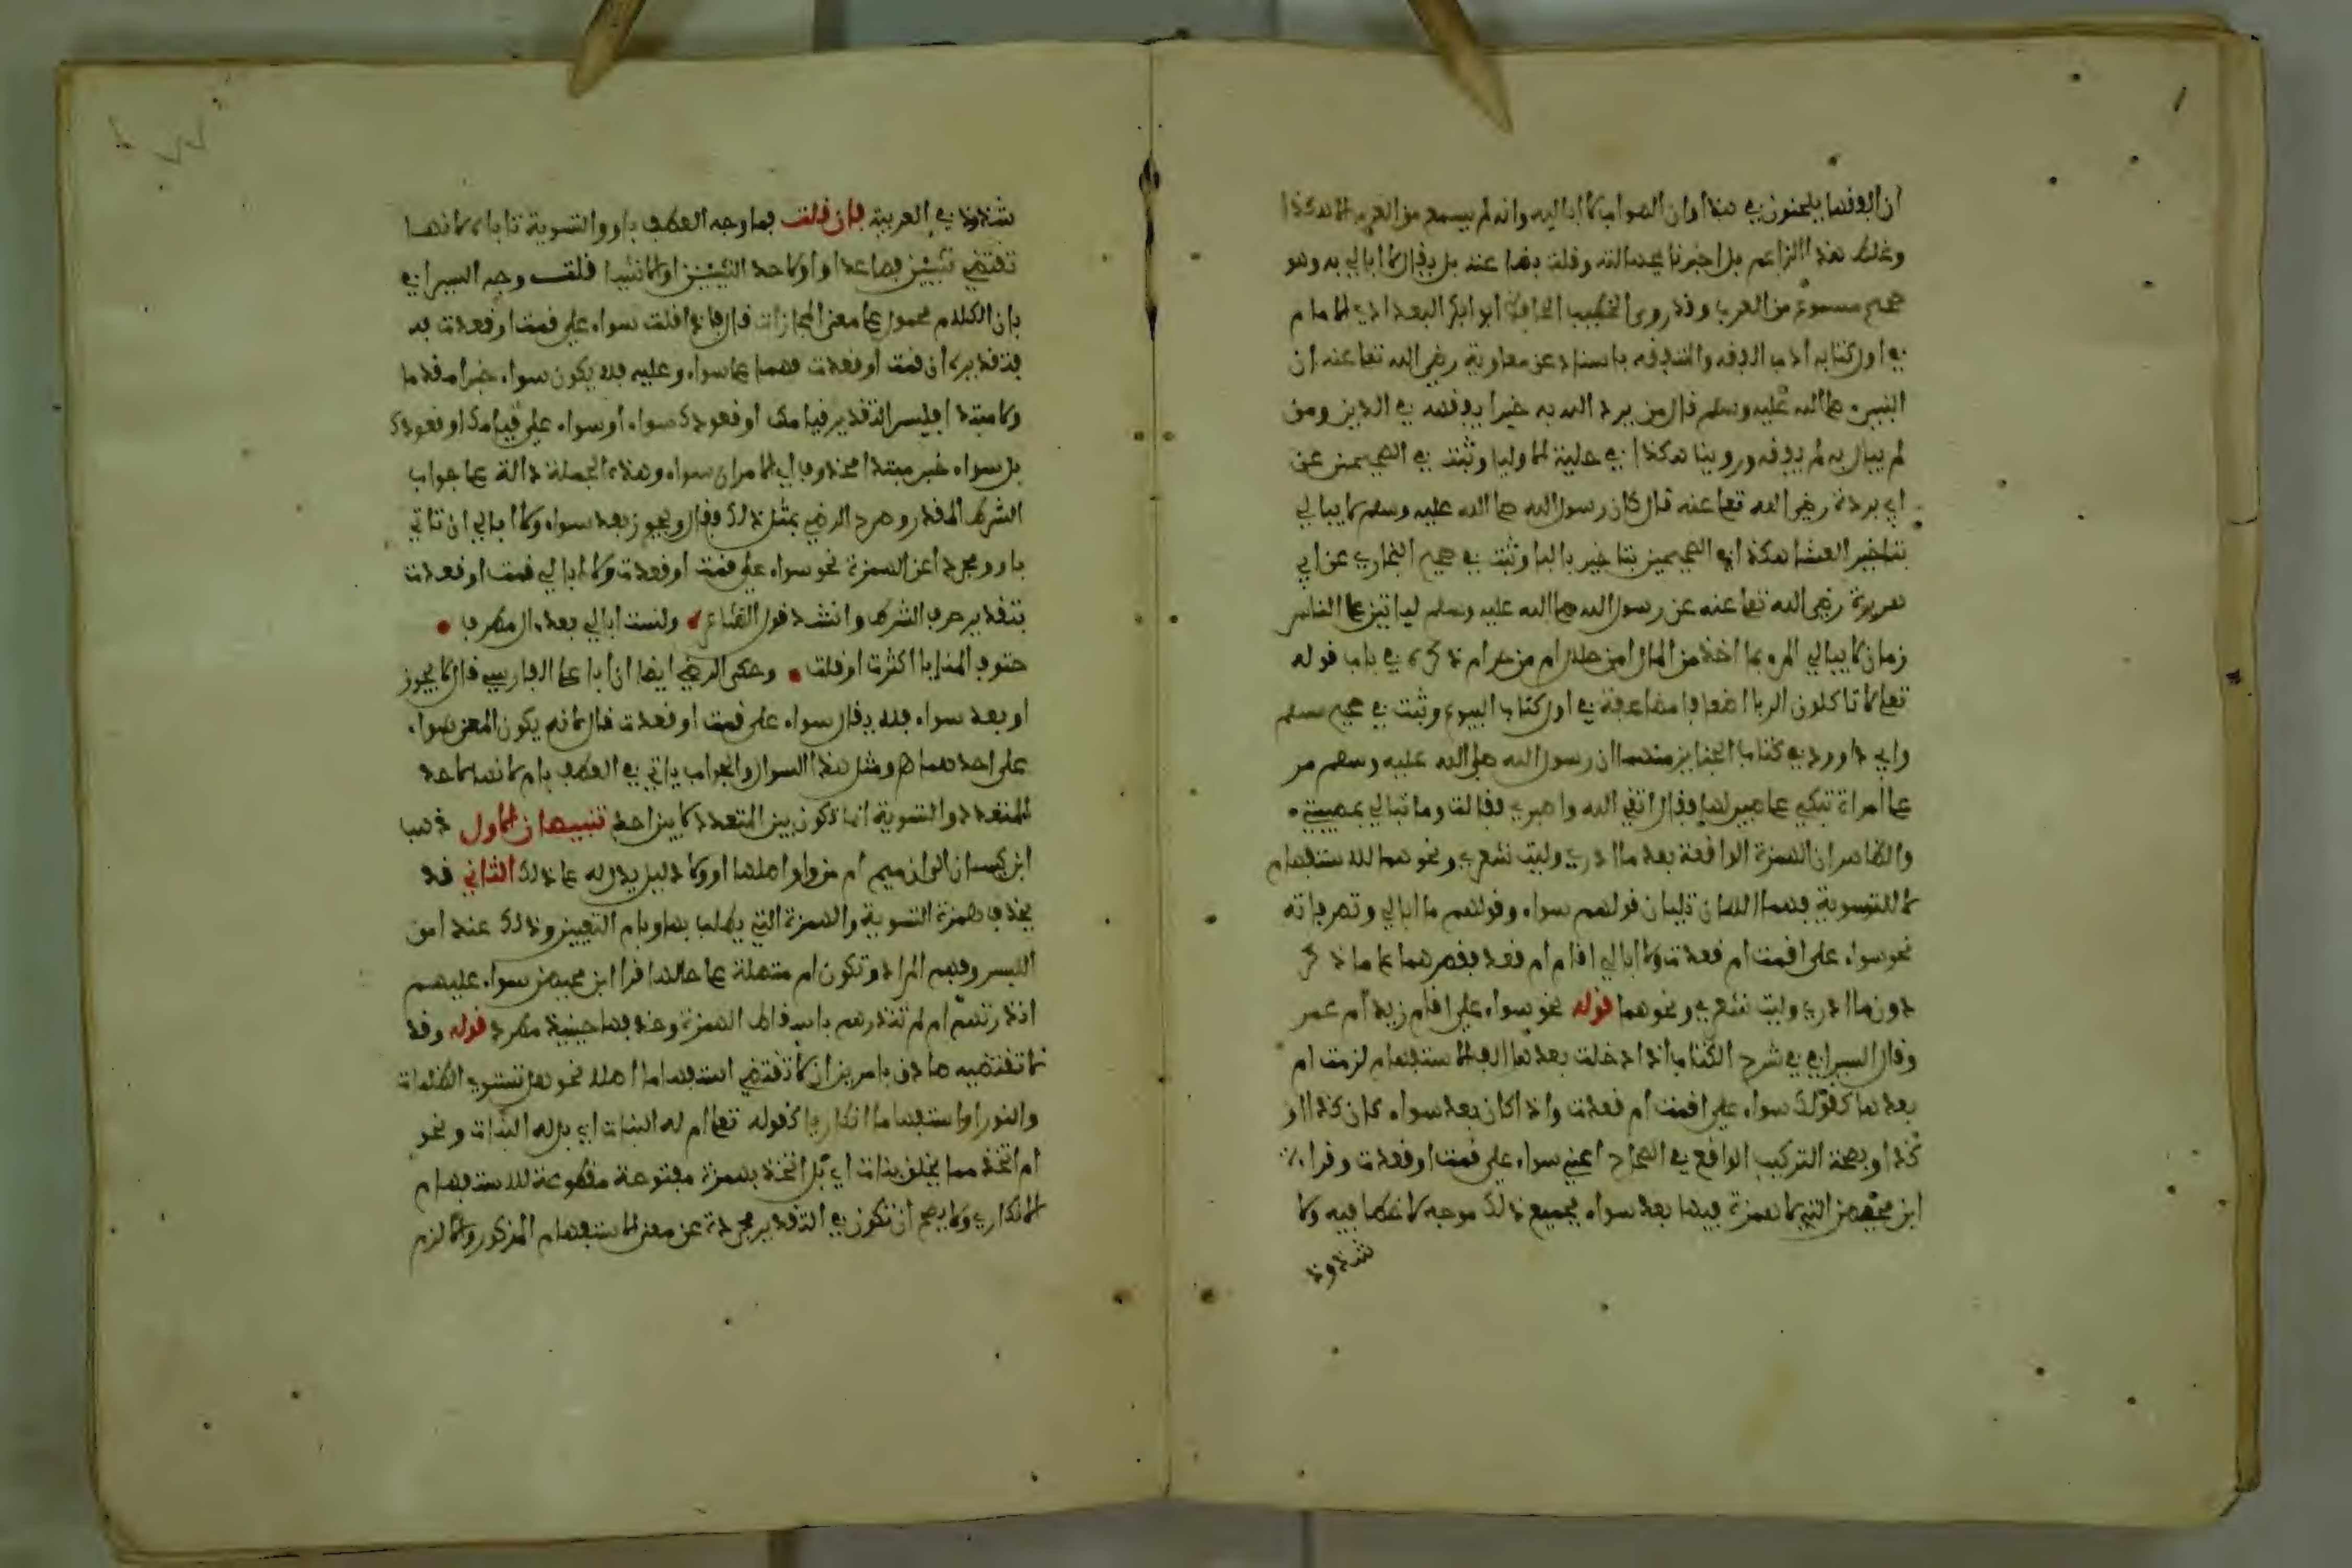 ان الفقهاء يلحنون في هذا وان الصواب لا اباليه وانه لم يسمع من العرب الا هكذا
وغلط هذا الزاعم بل اخبرنا بحسالته وقلت بقا عنه بل يقال لا ابالي به وهو
صحيح مسموع من العرب وقد روى الخطيب الحافظ ابو ابكر البغدادي الامام
في اول كتابه ادب الفقه والتفقه باسناد عن معاوية رضي الله تعا عنه ان
النبيء صلى الله عليه وسلم قال من يرد الله به خيرا يفقهه في الدين ومن
لم يبال به لم يفقه وروينا هكذا في حلية الاوليا وثبت في الصحيحين عن
ابي بردة رضي الله تعا عنه قال كان رسول الله صلى الله عليه وسلم لا يبالي
بتاخير العشا هكذا في الصحيحين بتاخير بالبا وثبت في صحيح البخاري عن ابي
هريرة رضي الله تعا عنه عن رسول الله صلى الله عليه وسلم لياتين على الناس
زمان لا يبالي المرء بما اخذ من المال امن حلال ام من حرام ذكره في باب قوله
تعا لا تاكلون الربا اضعافا مضاعفة في اول كتاب البيوع وثبت في صحيح مسلم
وابي داوود في كتاب الجنايز منهما ان رسول الله صلى الله عليه وسلم مر
على امراة تبكي على صبي لها فقال اتقي الله واصبري فقالت وما تبالي بمصيبتي
والظاهر ان الهمزة الواقعة بعد ما ادري وليت شعري ونحوهما للاستفهام
لا للتسوية فهما اللذان تليان قولهم سواء وقولهم ما ابالي وتصرفاته
نحو سواء على اقمت ام قعدت ولا ابالي اقام ام قعد فقصرهما على ما ذكر
دون ما ادري وليت شعري ونحوهما قوله نحو سواء علي اقام زيد ام عمر
وقال السيرافي في شرح الكتاب اذا دخلت بعدها الف الاستفهام لزمت ام
بعدها كقولك سواء علي اقمت ام قعدت واذا كان بعد سواء كان كذا او
كذا وبصحة التركيب الواقع في الصحاح اعني سواء علي قمت او قعدت وقرا
ابن محيصن التي لا همزة فيها بعد سواء فجميع ذلك موجه لا خطا فيه ولا
شذوذ
شذوذ في العربية فان قلت فما وجه العطف باو والتسوية تاباه لانها
تقتضي شيئين فصاعدا واو لاحد الشيئين او الاشيا قلت وجه السيرافي
بان الكلام محمول على معنى المجازات قال فاذا قلت سواء علي قمت او قعدت به
فتقديره ان قمت او قعدت فهما على سواء وعليه فلا يكون سواء خبرا مقدما
ولا مبتدا فليس التقدير قيامك او قعودك سواء او سواء علي قيامك او قعودك
بل سواء خبر مبتدا محذوف اي الامران سواء وهذه الجملة دالة على جواب
الشرط المقدر وصرح الرضي بمثل ذلك فقال ويجوز بعد سواء ولا ابالي ان تاتي
باو ومجردا عن الهمزة نحو سواء علي قمت او قعدت ولا ابالي قمت او قعدت
بتقدير حرف الشرط وانشد قول الشاعر ولست ابالي بعد ال مطرف
حتوف المنايا اكثرت او قلت وحكى الرضي ايضا ان ابا علي الفارسي قال لا يجوز
او بعد سواء فلا يقال سواء علي قمت او قعدت قال لانه يكون المعنى سواء
علي احدهما هـ ومثل هذا السوال والجواب ياتي في العطف بام لانها لاحد
المتعدد والتسوية انما تكون بين المتعدد لا بين احد تنبيهان الاول ذهب
ابن كيسان الى ان ميم ام من واو اصلها او ولا دليل يدل له على ذلك الثاني قد
يحذف همزة التسوية والهمزة التي يطلب بها وبام التعيين وذلك عند امن
اللبس وفهم المراد وتكون ام متصلة على حالها قرا ابن محيصن سواء عليهم
انذرتهم ام لم تنذرهم باسقاط الهمزة وحذفها حينيذ مطرد قوله وقد
لا تقتضيه صادق بامرين ان لا تقتضي استفهاما اصلا نحو هل تستوي الظلمات
والنور او استفهاما انكاريا كقوله تعا ام له البنات اي بل له البنات ونحو
ام اتخذ مما يخلق بنات اي بل اتخذ بهمزة مفتوحة مقطوعة للاستفهام
الانكاري ولا يصح ان تكون في التقدير مجردة عن معنى الاستفهام المذكور والا لزم